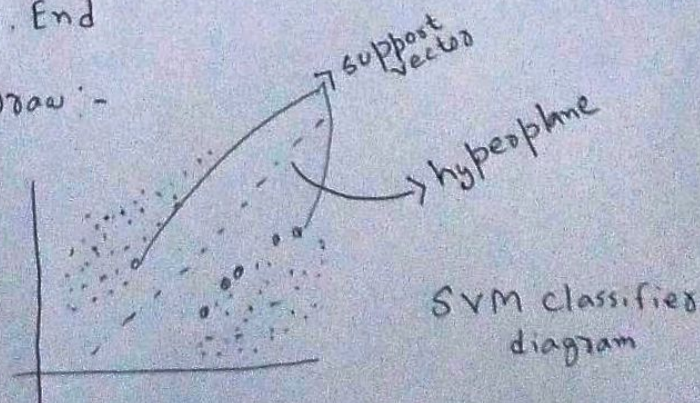 . End
Draw :-
support
vector
hyperplane
SVM classifier
diagram